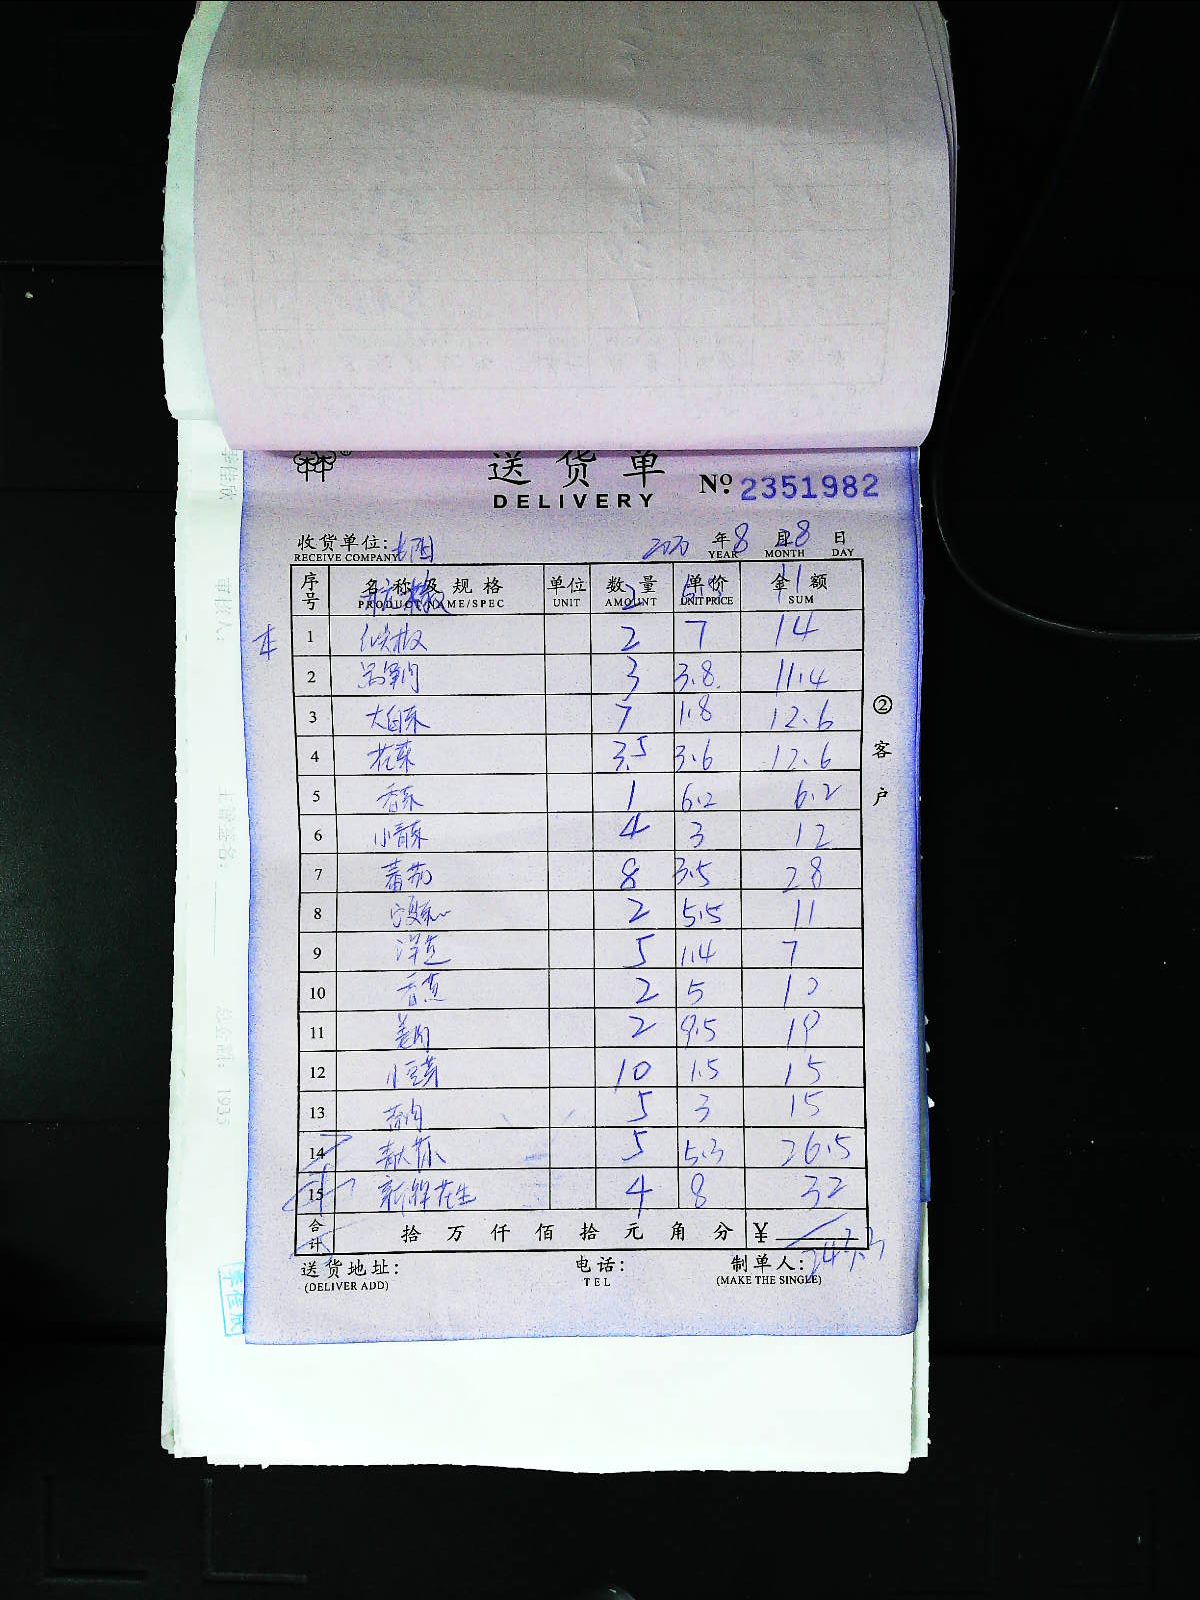 送货单
DELIVERY
№ 2351982
收货单位: 2020 年 8 月 28 日
RECEIVE COMPANY YEAR MONTH DAY
序号 名称及规格 单位 数量 单价 金额
PRODUCT NAME/SPEC UNIT AMOUNT UNIT PRICE SUM
2 11
1 2 7 14
2 3 3.8 11.4
3 大白菜 7 1.8 12.6
4 花菜 3.5 3.6 12.6
5 香菜 1 6.2 6.2
6 小青菜 4 3 12
7 蕃茄 8 3.5 28
8 2 5.5 11
9 洋芋 5 1.4 7
10 香蕉 2 5 10
11 姜 2 9.5 19
12 小豆芽 10 1.5 15
13 5 3 15
14 5 5.3 26.5
15 新鲜花生 4 8 32
合计 拾 万 仟 佰 拾 元 角 分 ¥
送货地址: 电话: 制单人:
(DELIVER ADD) TEL (MAKE THE SINGLE)
② 客户
李佳欣
审核人:
主管签名:
总金额: 1935
李佳欣